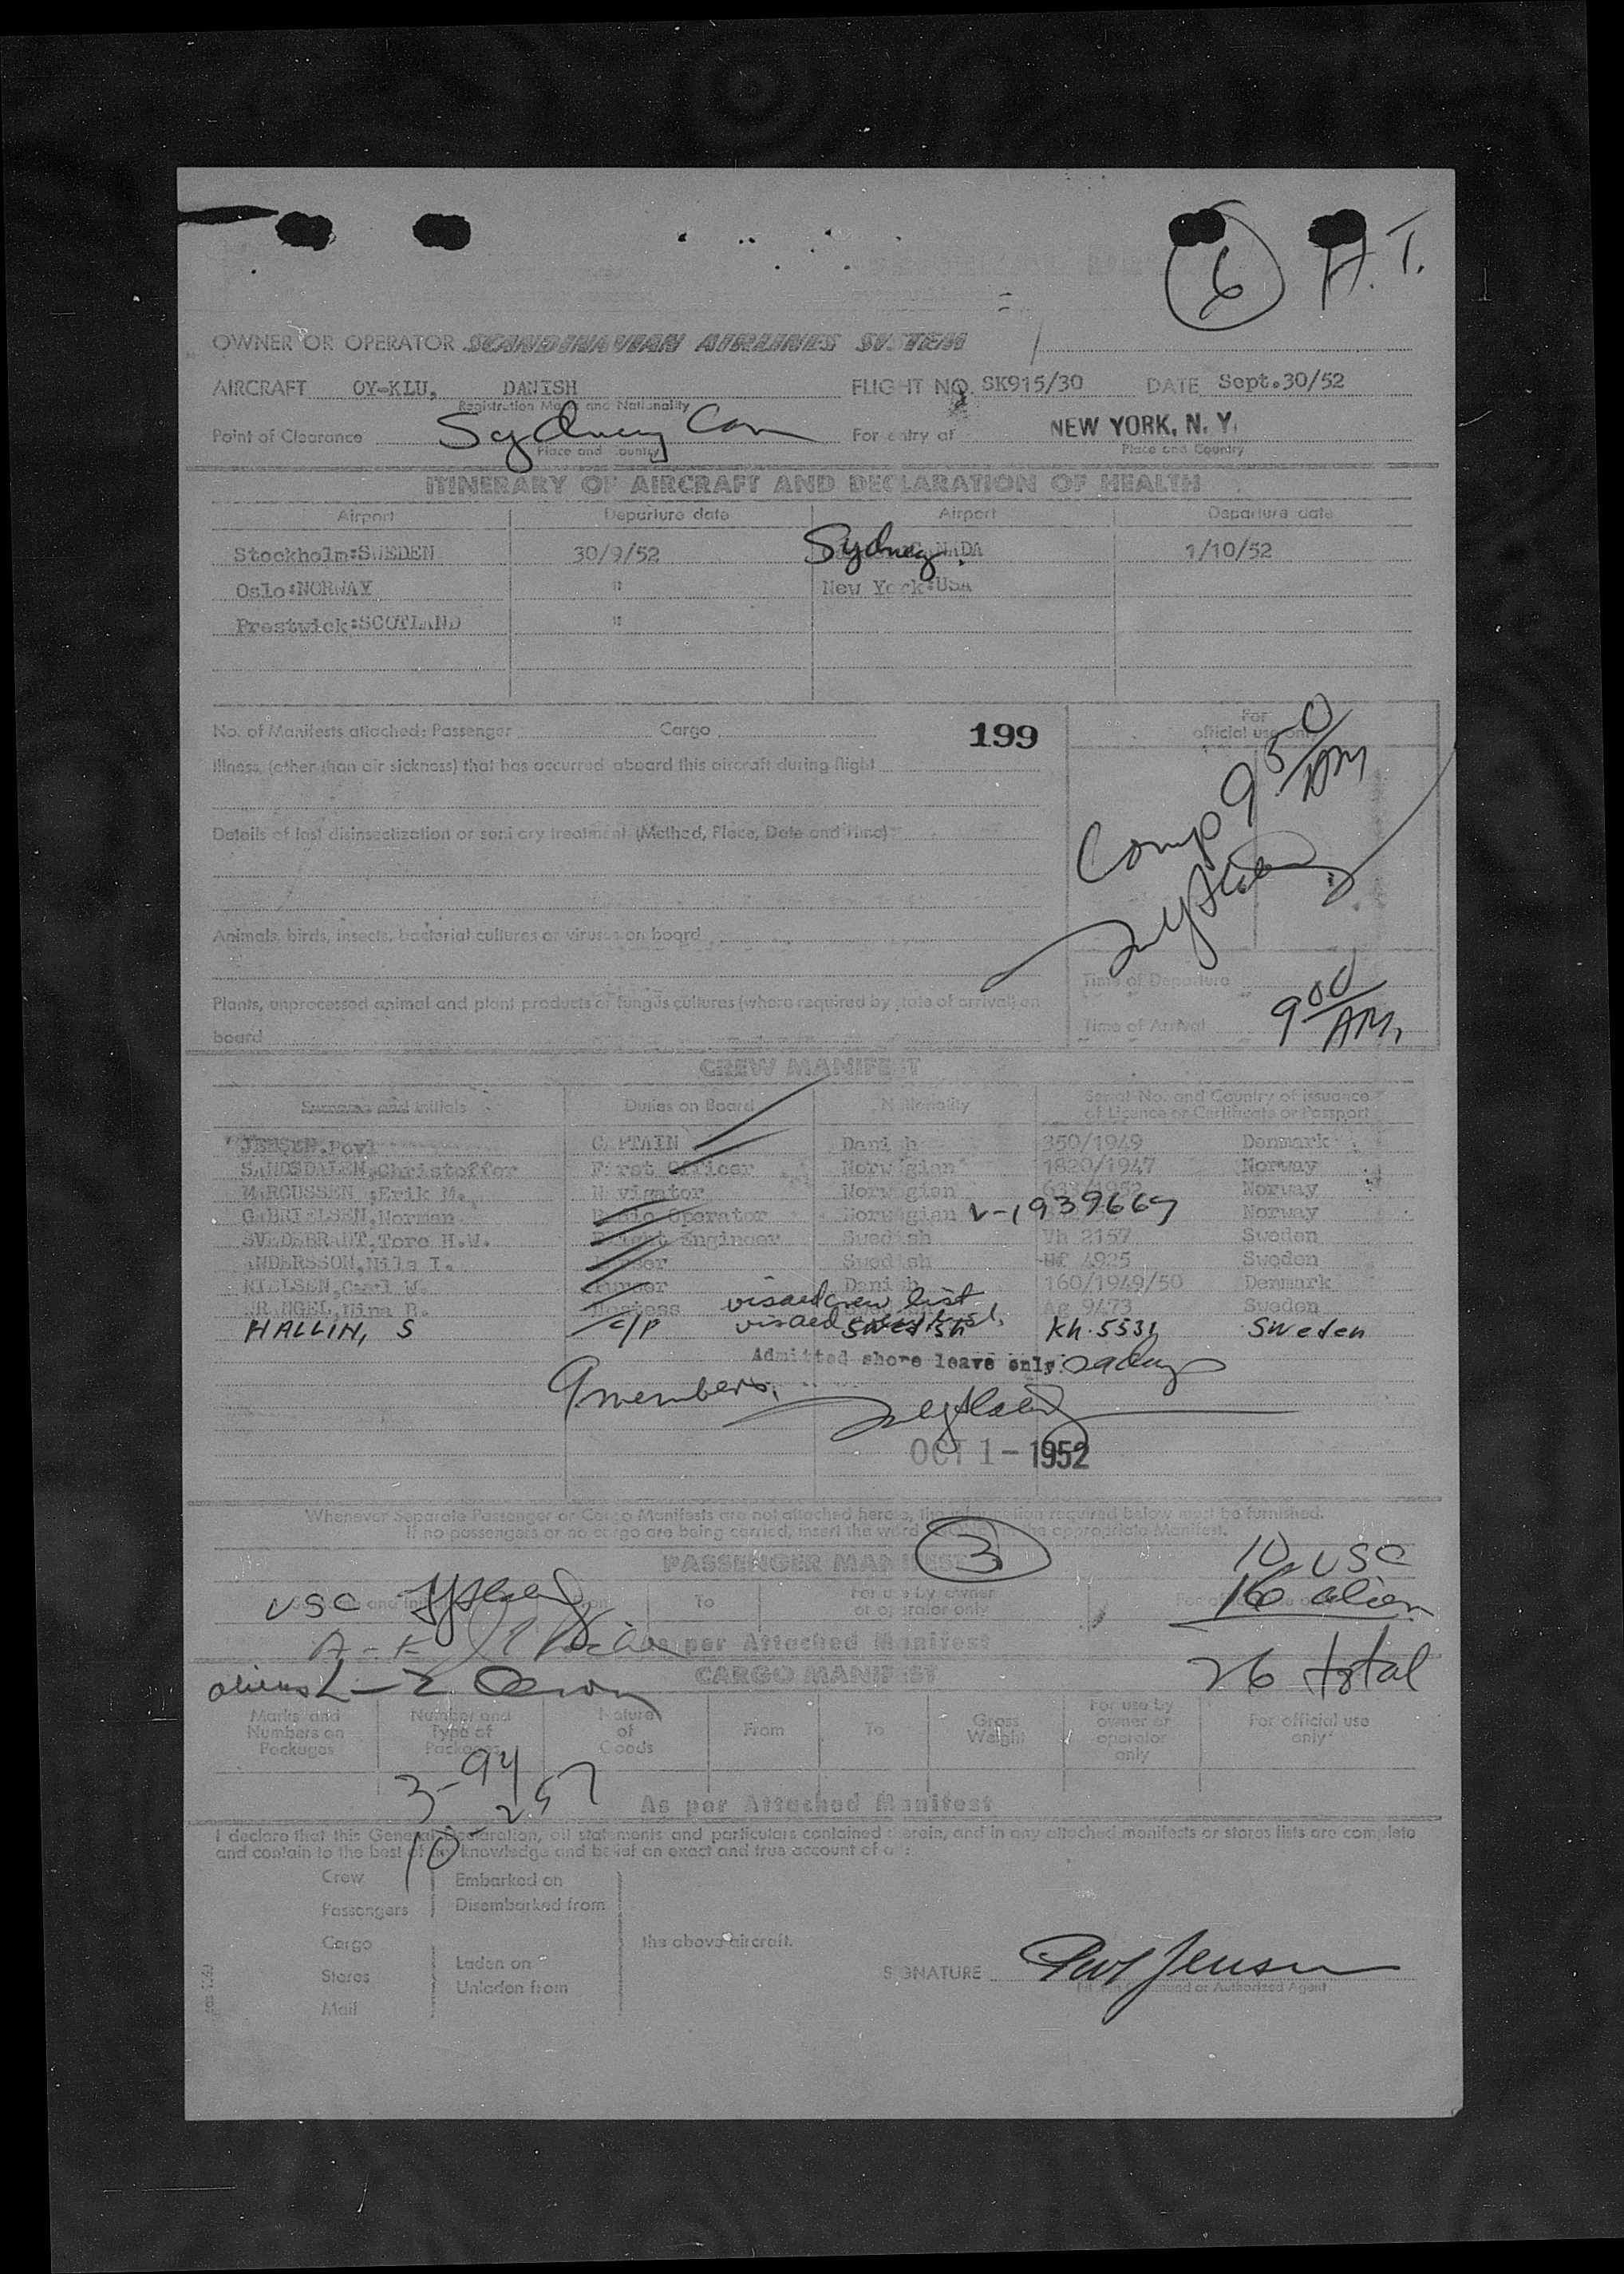 6 A. T.
OWNER OR OPERATOR SCANDINAVIAN AIRLINES SYSTEM
AIRCRAFT OY-KLU, DANISH FLIGHT NO. SK915/30 DATE Sept.30/52
Registration Marks and Nationality
Point of Clearance Sydney Can For entry at NEW YORK, N. Y.
Place and Country Place and Country
ITINERARY OF AIRCRAFT AND DECLARATION OF HEALTH
Airport Departure date Airport Departure date
Stockholm:SWEDEN 30/9/52 Sydney. CANADA 1/10/52
Oslo:NORWAY " New York:USA
Prestwick:SCOTLAND "
No. of Manifests attached: Passenger Cargo 199
For official use only
Illness, (other than air sickness) that has occurred aboard this aircraft during flight
Comp 9 50/AM
Details of last disinsectization or sanitary treatment (Method, Place, Date and Time)
Animals, birds, insects, bacterial cultures or viruses on board
Time of Departure
Plants, unprocessed animal and plant products or fungus cultures (where required by state of arrival) on
board
Time of Arrival 9 00/AM.
CREW MANIFEST
Surname and Initials Duties on Board Nationality Serial No. and Country of Issuance
of Licence or Certificate or Passport
JENSEN,Povl CAPTAIN Danish 350/1949 Denmark
SANDSDALEN,Christoffer First Officer Norwegian 1820/1947 Norway
MARCUSSEN ,Erik M. Navigator Norwegian 633/1952 Norway
GABRIELSEN,Norman Radio Operator Norwegian V-1939667 Norway
SVEDEBRANT,Tore H.W. Flight Engineer Swedish Vh 2157 Sweden
ANDERSSON,Nils I. Purser Swedish 4925 Sweden
NIELSEN,Carl W. Purser Danish 160/1949/50 Denmark
WRANGEL,Nina B. Hostess visaed crew list Ag 9473 Sweden
HALLIN, S c/p visaed crew list. Swedish Kh. 5531 Sweden
Admitted shore leave only
9 members.
OCT 1 - 1952
Whenever Separate Passenger or Cargo Manifests are not attached hereto, the information required below must be furnished.
If no passengers or no cargo are being carried, insert the word appropriate Manifest.
PASSENGER MANIFEST 3 10 USC
USC To For use by owner or operator only 16 alien
A-K As per Attached Manifest
26 total
CARGO MANIFEST
aliens L-Z
Marks and Numbers on Packages Number and Type of Packages Nature of Goods From To Gross Weight For use by owner or operator only For official use only
3-94
10-257
As per Attached Manifest
I declare that this General Declaration, all statements and particulars contained therein, and in any attached manifests or stores lists are complete
and contain to the best of my knowledge and belief an exact and true account of all:
Crew Embarked on
Passengers Disembarked from
Cargo the above aircraft.
Stores Laden on
Unladen from
Mail
SIGNATURE Povl Jensen
Pilot in Command or Authorized Agent